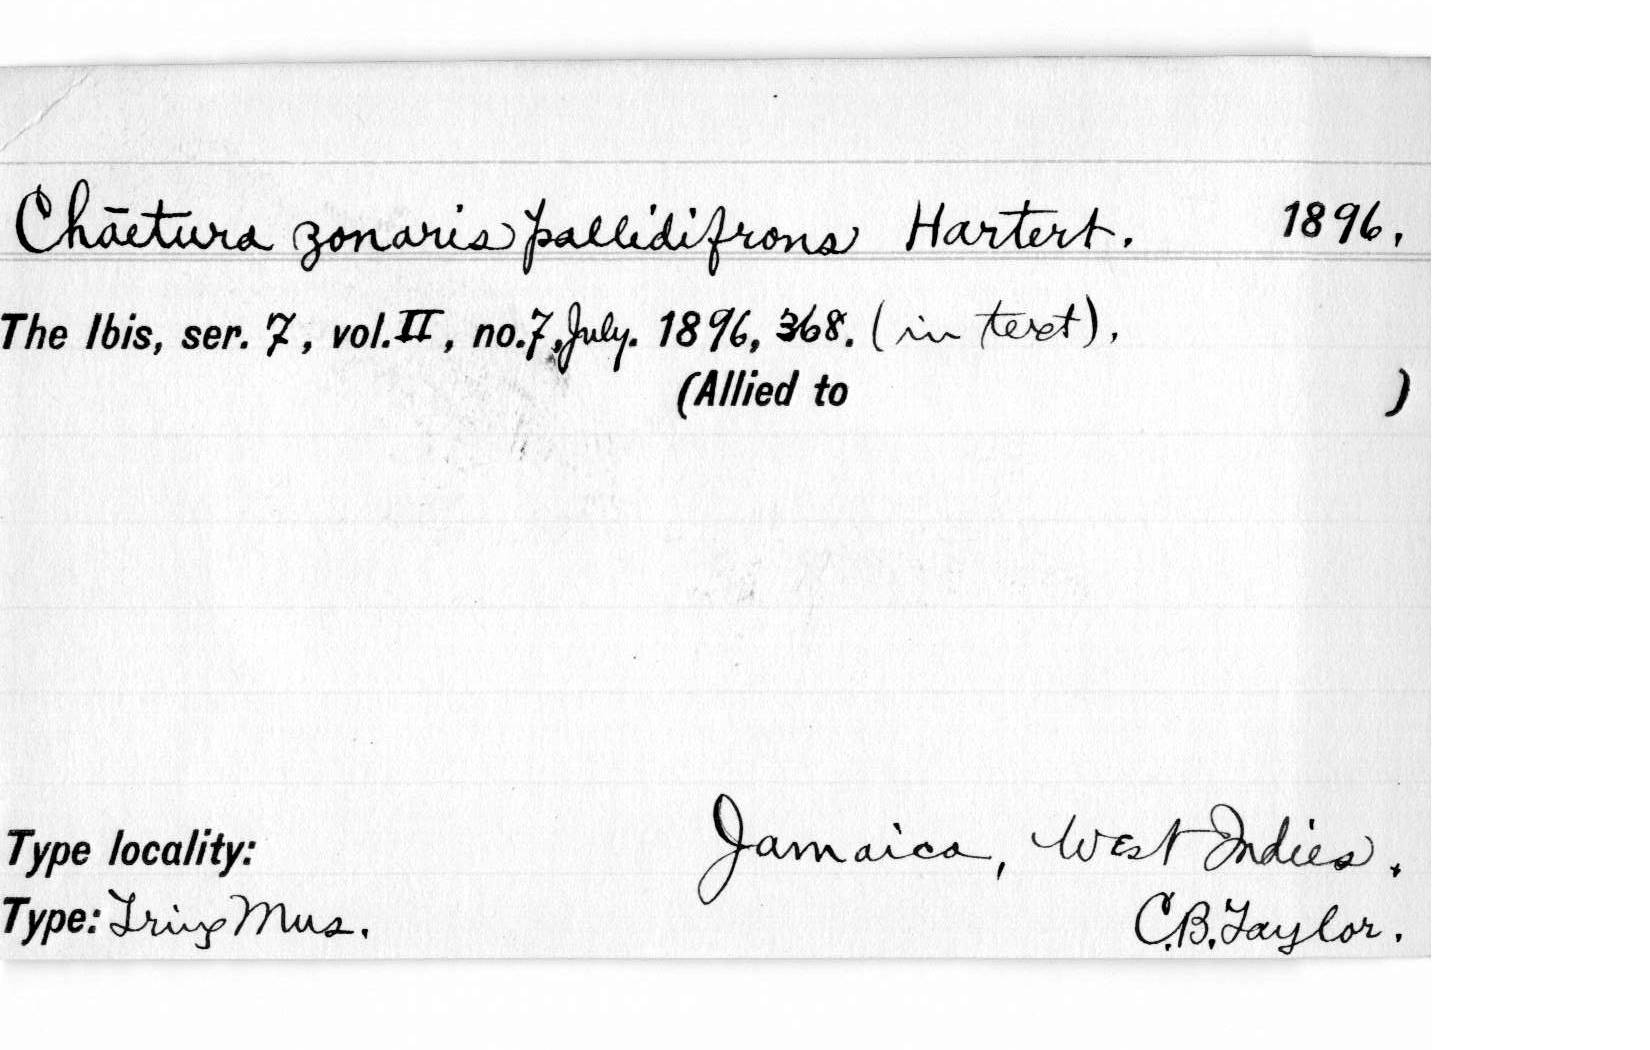 Chaetura zonaris pallidifrons Hartert. 1896.
The Ibis, ser. 7, vol. II, no. 7, July. 1896, 368. (in text).
(Allied to )
Type locality: Jamaica, West Indies.
Type: Tring Mus. C.B. Taylor.